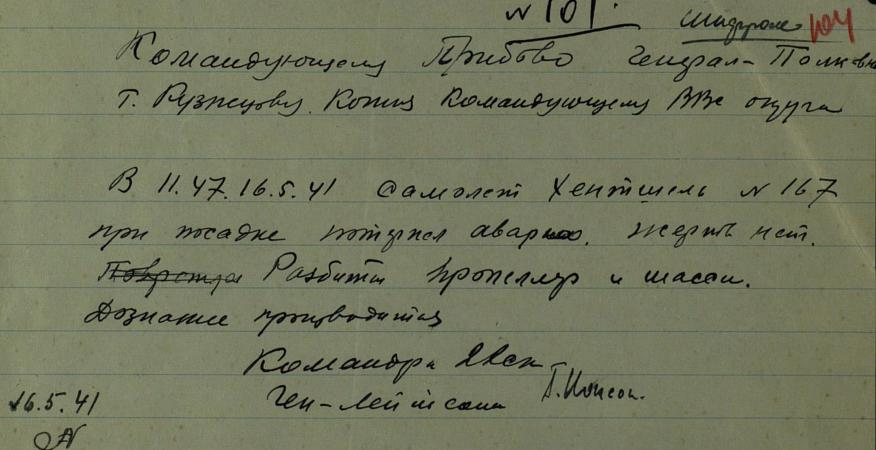 N 101. Шифром 104
Командующему Прибово Генерал-Полковн
т. Кузнецову. Копия Командующему ВВС округа
В 11.47. 16.5.41 Самолет Хентшель N 167
при посадке потерпел аварию. Жертв нет.
Разбиты пропеллер и шасси.
Дознание производится
Командир
Ген-Лейтенант
16.5.41